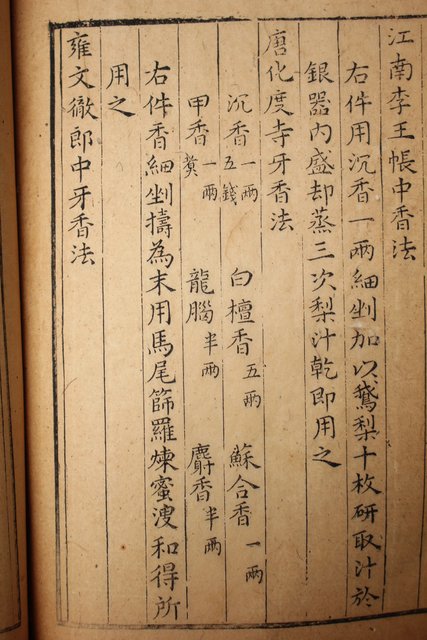 江南李王帳中香法
右件用沉香一兩細剉加以鵝梨十枚研取汁於
銀器內盛却蒸三次梨汁乾即用之
唐化度寺牙香法
沉香一兩五錢 白檀香五兩 蘇合香一兩
甲香一兩煑 龍腦半兩 麝香半兩
右件香細剉擣為末用馬尾篩羅煉蜜溲和得所
用之
雍文徹郎中牙香法